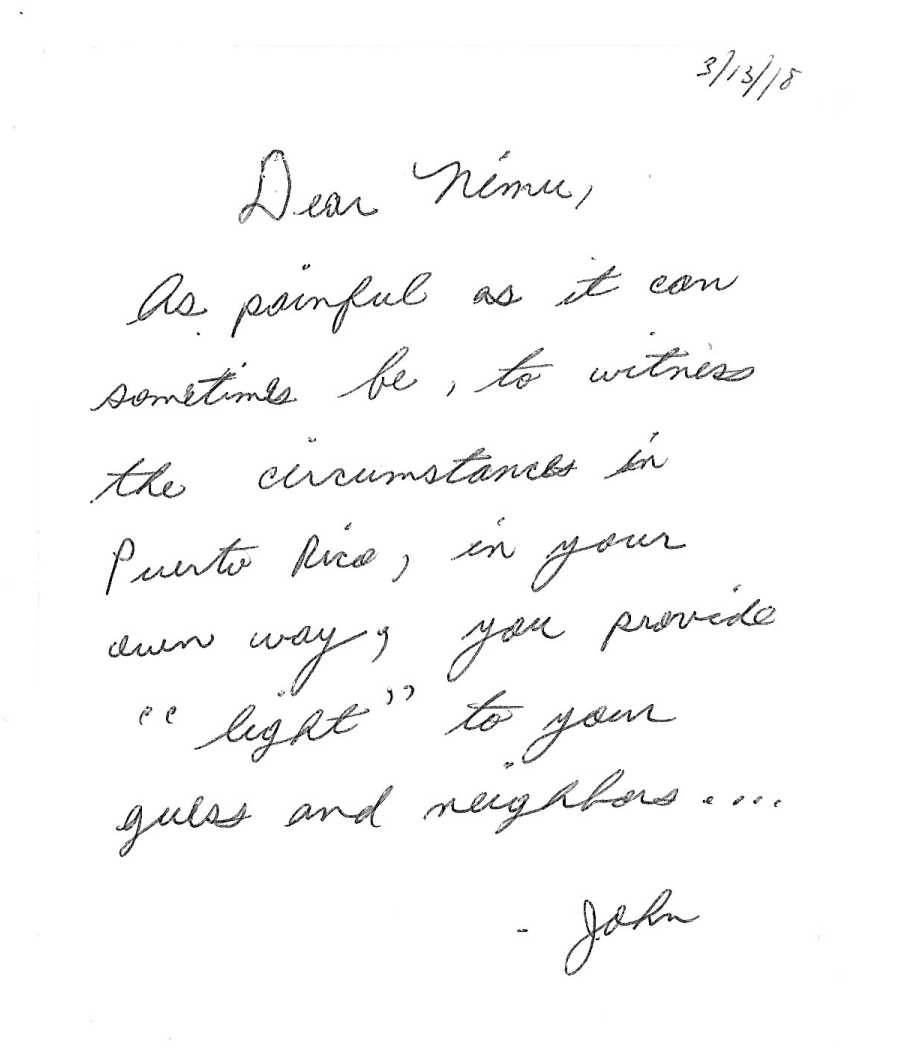 3/13/18
Dear Nimu,
As painful as it can
sometimes be, to witness
the circumstances in
Puerto Rico, in your
own way, you provide
"light" to your
guess and neighbors....
- John